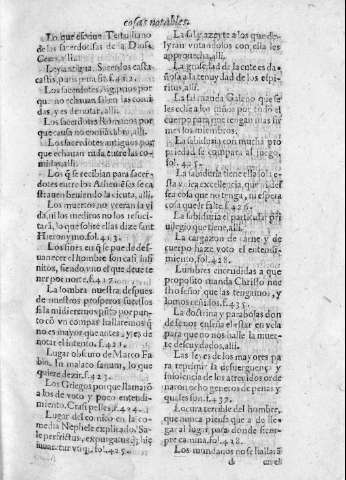 cosas notables.
Lo que escriue Tertuliano
de los sacerdotisas de la Diosa
Ceres, allì.
Ley antigua. Sacerdos casta
castis, para pura sit. f.412.
Los sacerdotes Egipcios por
que no echauan sal en las comi
das, y es de notar, allì.
Los sacerdotes Romanos por
que causa no
Los sacerdotes antiguos por
que echauan en las
allì.
Los q̃ se recibian para sacer
dotes entre los
la cicuta, allì.
Los muertos no veràn la vi
da, ni los medicos no los resuci
taràn, lo que sobre ellas dize sant
Hieronymo. fol.413.
Los fines en q̃ se puede des
uanecer el hombre son casi infi
nitos, siendo vno el que deue te
ner por norte, f.417.
La sombra nuestra despues
de nuestros prosperos sucessos
si la midieremos pũto por pun-
to cõ vn compas hallaremos q̃
no es mayor que antes, y es de
notar el intento. f.421.
Lugar obscuro de Marco Fa
bio. In malaco sanam, lo que
quiere dezir. f.423.
Los Griegos porque llamarõ
a los de voto y poco entendi-
miento. Crasi pelles. f.424.
Lugar del comico en la co-
media Nephele explicado. Sa-
le perfrictus, expurgatus q; hic
iuuatur vtiq;. fol.425.
La sal y azeyte a los que de-
lyran vntandolos con ella les
aprouecha, allì.
La grosedad de la carne es da
ñosa a la tenuydad de los espi-
ritus, allì.
La sal manda Galeno que se
les eche a los niños por todo el
cuerpo para que tengan mas fir
mes los miembros.
La sabiduria con mucha pro
priedad se compara al fuego,
fol.425.
La sabiduria tiene ella sola es-
ta vnica excellencia, que
sea cosa que no tenga, ni espera
cosa que le falte. f.426.
La sabiduria el particular pri
uilegio que tiene, allì.
La cargazon de carne y de
cuerpo haze voto el entendi-
miento, fol.428.
Lumbres encendidas a que
proposito manda Christo nue
stro señor que las tengamos, y
lomos ceñidos. f.435.
La doctrina y parabolas don
de señor enseña el estar en vela
para que no nos halle la muer-
te descuydados, allì.
Las leyes de los mayores pa
ra reprimir la desuerguença y
insolencia de los atreuidos orde
naron ocho generos de penas y
quales son. f.432.
Locura terrible del hombre,
que nunca piensa que a de lle-
gar al lugar para donde siem-
pre camina. fol.438.
Los mundanos no se hallarã